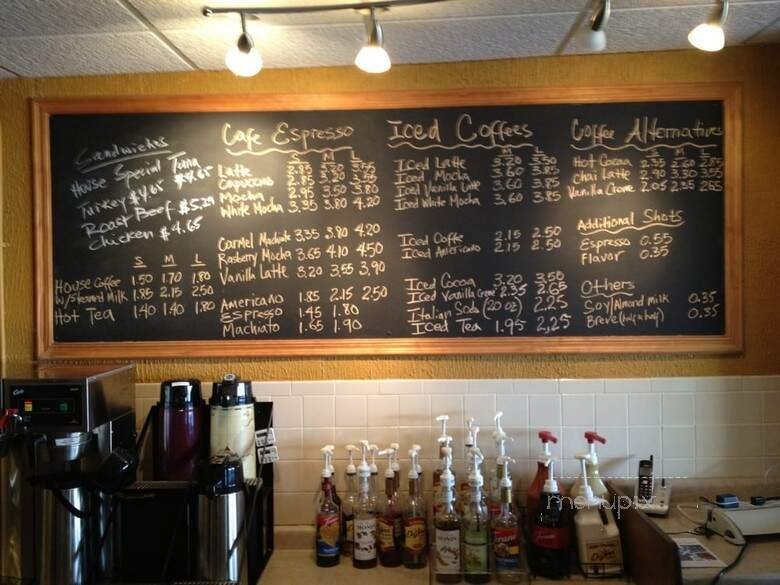 Sandwiches
House Special Tuna $4.65
Turkey $4.65
Roast Beef $5.29
Chicken $4.65
S M L
House Coffee 1.50 1.70 1.80
w/steamed Milk 1.85 2.15 2.50
Hot Tea 1.40 1.40 1.80
Cafe Espresso
S M L
Latte 2.85 3.30 3.55
Capuccino 2.85 3.30 3.55
Mocha 2.95 3.50 3.80
White Mocha 3.35 3.80 4.20
Carmel Machiato 3.35 3.80 4.20
Rasberry Mocha 3.65 4.10 4.50
Vanilla Latte 3.20 3.55 3.90
Americano 1.85 2.15 2.50
Espresso 1.45 1.80
Machiato 1.65 1.90
Iced Coffees
M L
Iced Latte 3.20 3.50
Iced Mocha 3.60 3.85
Iced Vanilla Latte 3.60 3.85
Iced White Mocha 3.60 3.85
Iced Coffe 2.15 2.50
Iced Americano 2.15 2.50
Iced Cocoa 3.20 3.50
Iced Vanilla Creme 2.35 2.65
Italian Soda (20 oz) 2.25
Iced Tea 1.95 2,25
Coffee Alternatives
S M L
Hot Cocoa 2.35 2.60 2.85
Chai Latte 2.90 3.30 3.55
Vanilla Creme 2.05 2.35 2.65
Additional Shots
Espresso 0.55
Flavor 0.35
Others
Soy/Almond milk 0.35
Breve (half & half) 0.35
menupix